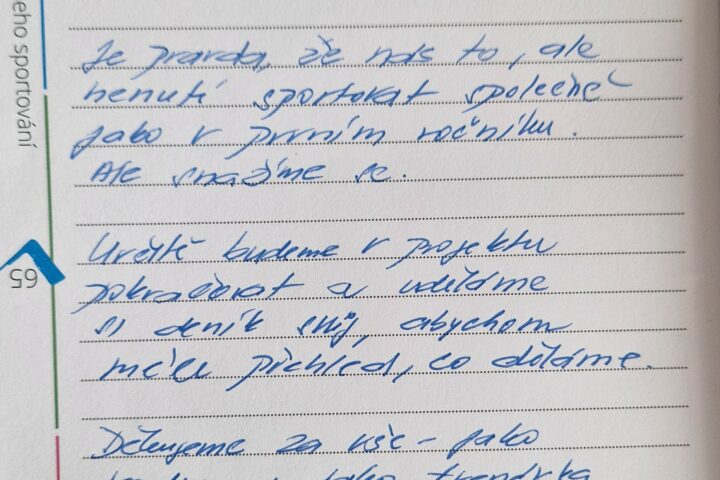 eho sportování
65
Je pravda, že nás to, ale
nenutí sportovat společně
jako v prvním ročníku.
Ale snažíme se.
Určitě budeme v projektu
pokračovat a uděláme
si deník svůj, abychom
měli přehled, co děláme.
Děkujeme za vše - jako
jako